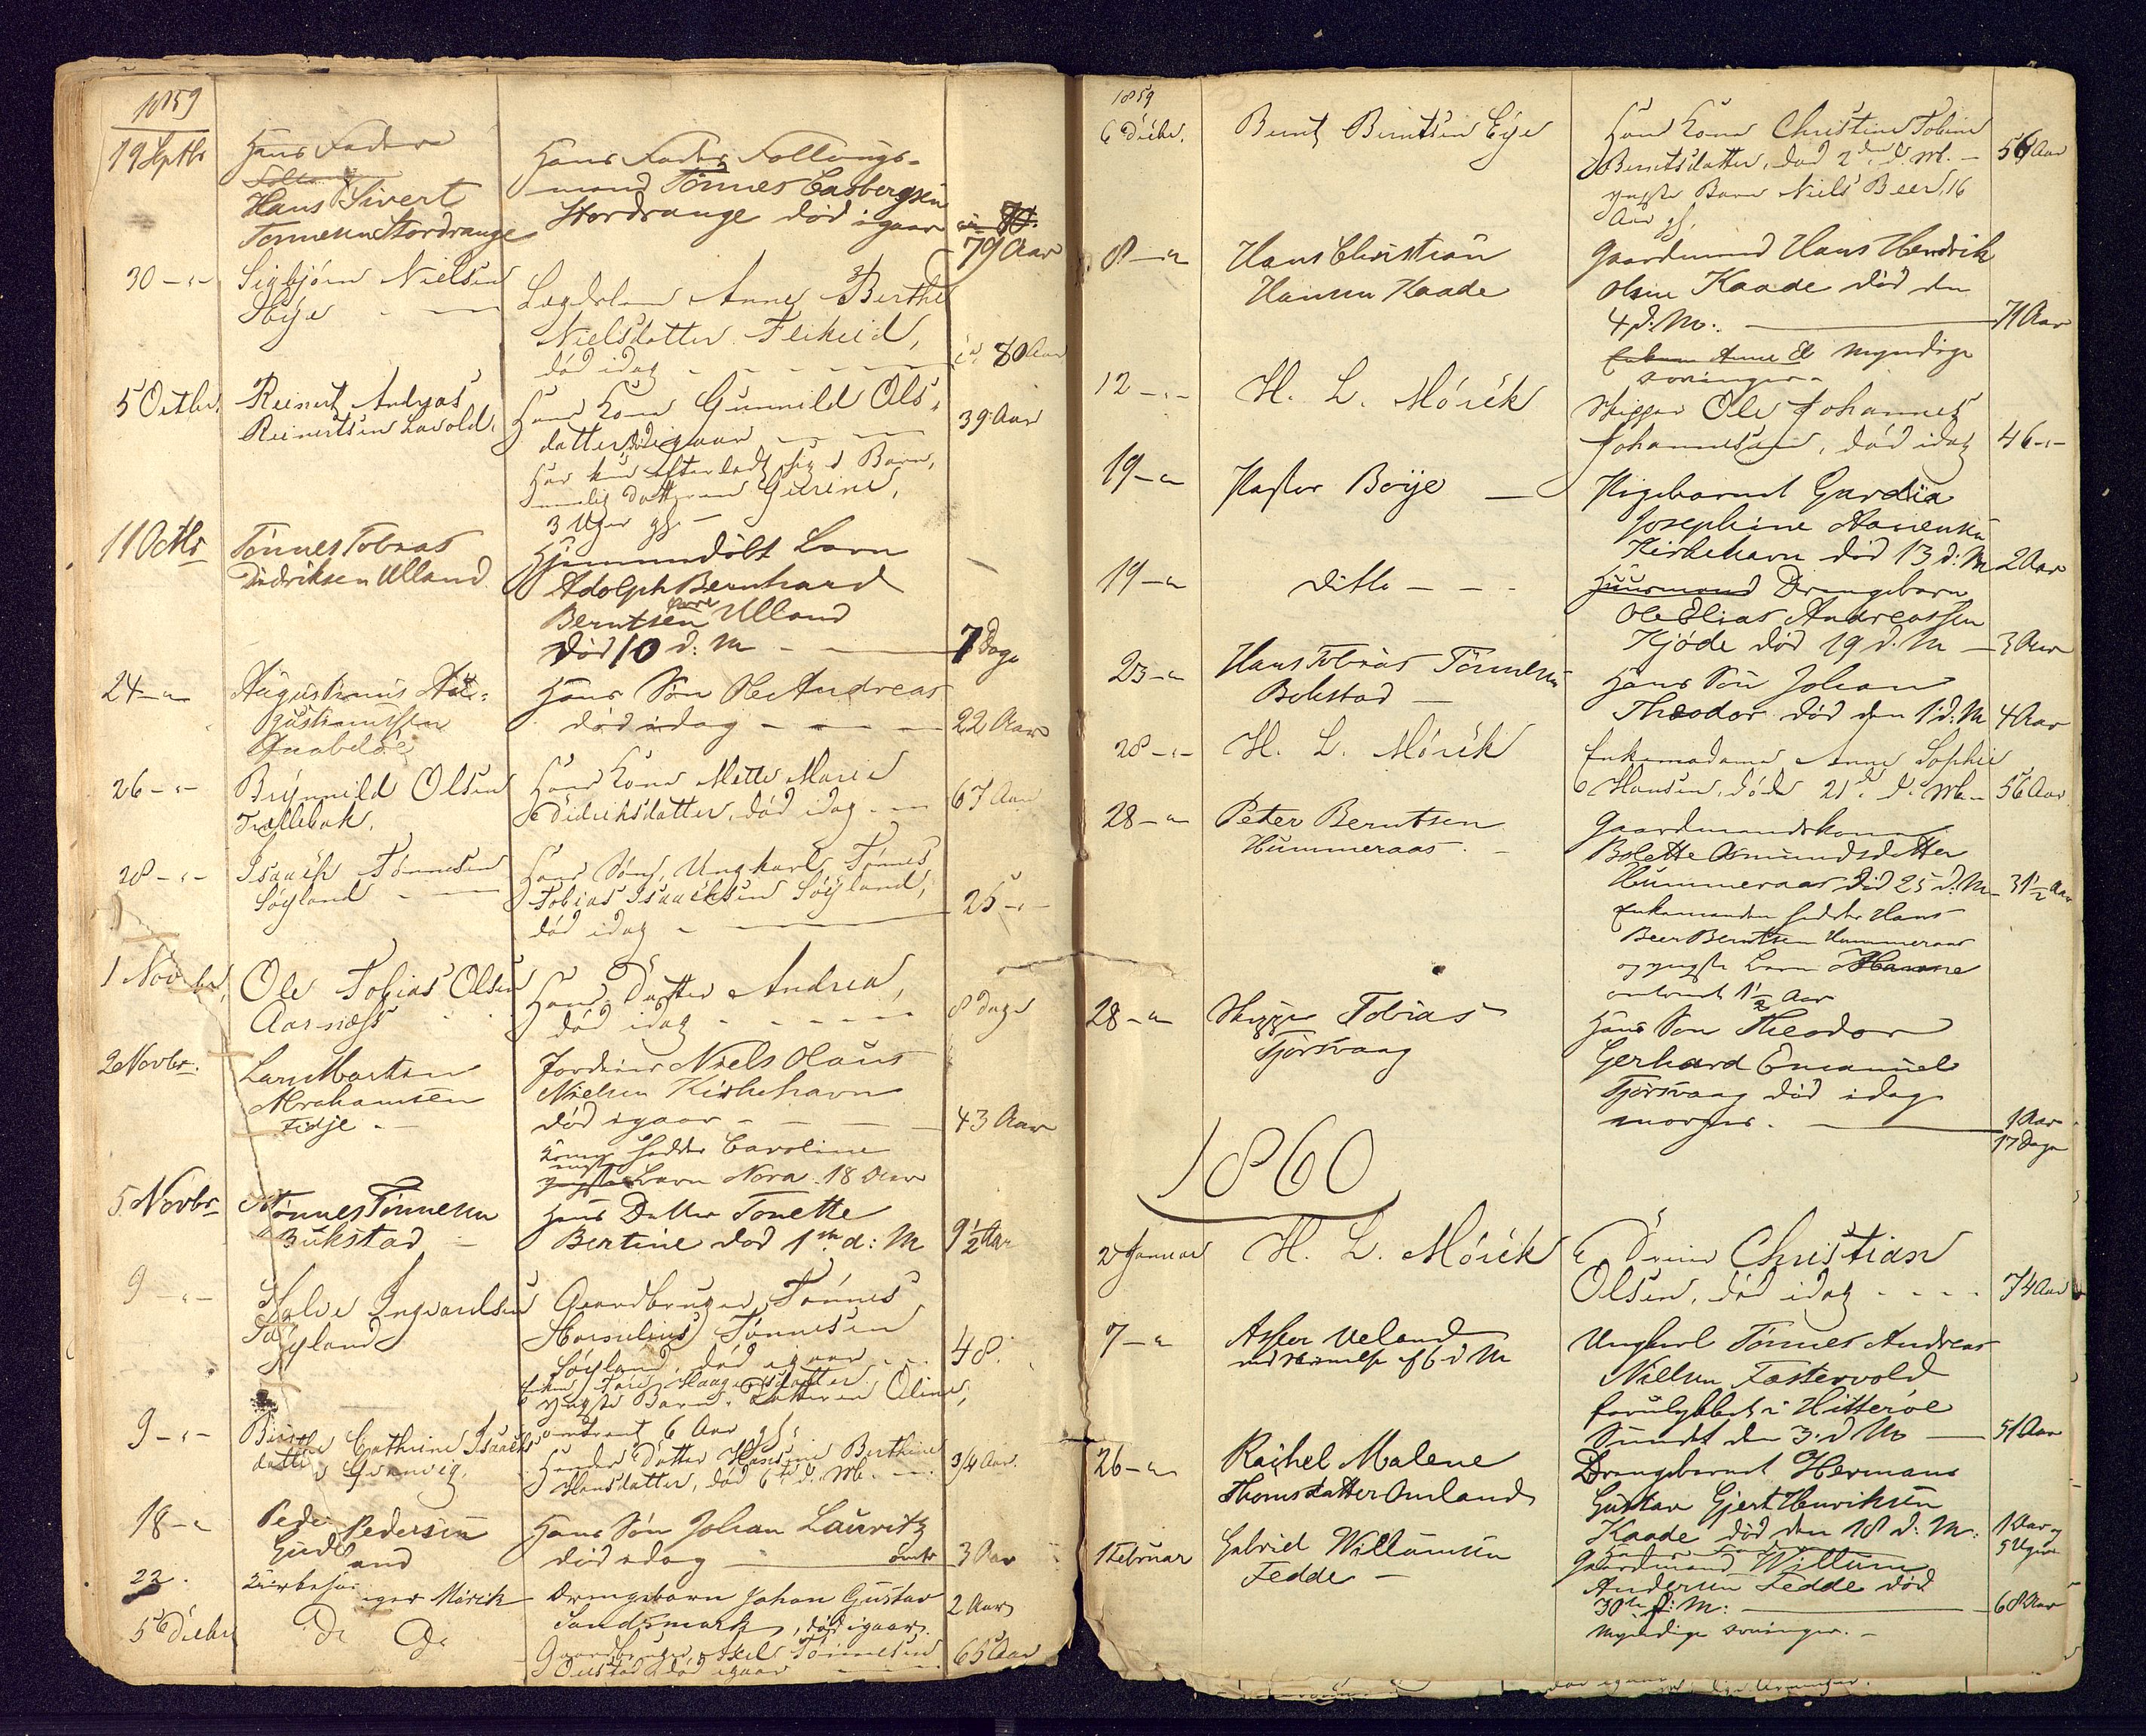 1859
19 Septbr
Hans Fader
Hans Sivert
Tønnesen Stordrange
Hans Fader Follougs-
mand Tønnes Casbergsen
Stordrange død igaar
79 Aar
30 -"-
Sigbjørn Nielsen
Lægdslem Anne Berthe
Nielsdatter Fleheid,
død idag - - -
80 Aar
5 Octbr.
Reinert Andreas
Reinertsen Lavold.
Hans Kone Gunnild Ols-
datter, død igaar
Børn,
nemlig Datteren Gurine,
3 Uger gl. -
39 Aar
11 Octbr
Tønnes Tobias
Didriksen Ulland
Hjemmedøbt Barn
Adolph Bernhard
Berntsen Ulland
Død 10 d. M
7 Dage
24 -"-
Augustinus Au-
gustinussen
Anabeløe
Hans Søn Ole Andreas
død idag - - -
22 Aar
26 -"-
Brynnild Olsen
Trællebak.
Hans Kone Mette Marie
Didriksdatter, død idag
67 Aar
28 -"-
Isaach Tønnesen
Løyland
Hans Søn, Ungkarl Tønnes
Tobias Isaachsen Løyland,
død idag -
25 -"-
1 Novbr.
Ole Tobias Olsen
Aarnæss
Hans Datter Andrea,
død idag - - -
8 Dage
2 Novbr.
Lars Martin
Abrahamsen
Fidje -
Jordeier Niels Olaus
Nielsen Kirkehavn
død igaar
Konen hedder Caroline
yngste Barn Nora 18 Aar
43 Aar
5 Novbr
Tønnes Tønnesen
Bukstad
Hans Datter Tonette
Bertine død 1ste d: M
9 1/2 Aar
9 -"-
Salve Ingvardsen
Løyland
Gaardbruger Tønnes
Cornelius Tønnesen
Løyland, død igaar
Enken Tore Haagensdatter
yngste Barn, Datteren Oline,
omtrent 6 Aar gl.
48.
9 -"-
Birthe Cathrine Isaachs
datter Grønvig.
Hendes Datter Hansine Berthine
Hansdatter, død 6te d. Mt.
3/4 Aar
18 -"
Peder Pedersen
Gudland
Hans Søn Johan Lauritz
død idag omtr
3 Aar
22.
Kirkesanger Mörck
Drengebarn Johan Gustav
Sandsmark, død igaar.
2 Aar
5te Decbr
Do Do
Gaardbruger Axel Tønnesen
død igaar
65 Aar
1859
6te Decbr.
Bernt Berntsen Eye
Hans Kone Christine Tobine
Berntsdatter, død 2den d. Mt. -
yngste Barn Niels Beer, 16
Aar gl.
56 Aar
8 -"
Hans Christian
Hansen Kaade
Gaardmand Hans Hendrik
Olsen Kaade død den
4 d: M:.
71 Aar
Enken Anne E myndige
arvinger -
12 -"-
H. L. Mörck
Skipper Ole Johannes
Johannessen, død idag
46 -"-
19 -"
Pastor Böye
Pigebarnet Gurdia
Josephine
Kirkehavn død 13 d: M
2 Aar
19 -"
ditto - - -
Huusmand Drengebarn
Ole Elias Andreassen
Kjøde død 19 d. M
3 Aar
23 -"
Hans Tobias Tønnesen
Bokstad -
Hans Søn Johan
Theodor død den 1 d: M
4 Aar
28 -"-
H. L. Mörck
Enkemadame Anne Sophie
Hansen, døde 21de d. Mt.
56 Aar
28 -"
Peter Berntsen
Hummeraas.
Gaardmandskone
Bolette Asmundsdatter
Hummeraas død 25 d. M
31 1/2 Aar
Enkemanden hedder Hans
Beer Berntsen Hummeraas
og yngste Barn Hanne
omtrent 1 1/2 Aar
28 -"
Skipper Tobias
Tjörsvaag
Hans Søn Theodor
Gerhard Emanuel
Tjörsvaag død idag
morges.
1 Aar
17 Dage
1860
2 Januar
H. L. Mörck
Christian
Olsen, død idag - - -
74 Aar
7 -"
Asser Ueland
af 6 d M
Ungkarl Tønnes Andreas
Nilsen Fastervold
forulykket i Hitterøe
Sundet den 3. d M
51 Aar
26 -"
Rachel Malene
Thomsdatter Omland
Drengebarnet Hermans
Gustav Gjert Henriksen
Kaade død den 18 d. M:
1 Aar og
5 Uger
1 Februar
Gabriel Willumsen
Fedde -
Gaardmand Willum
Andersen Fedde død
30te d: M:
68 Aar
Myndige arvinger. -